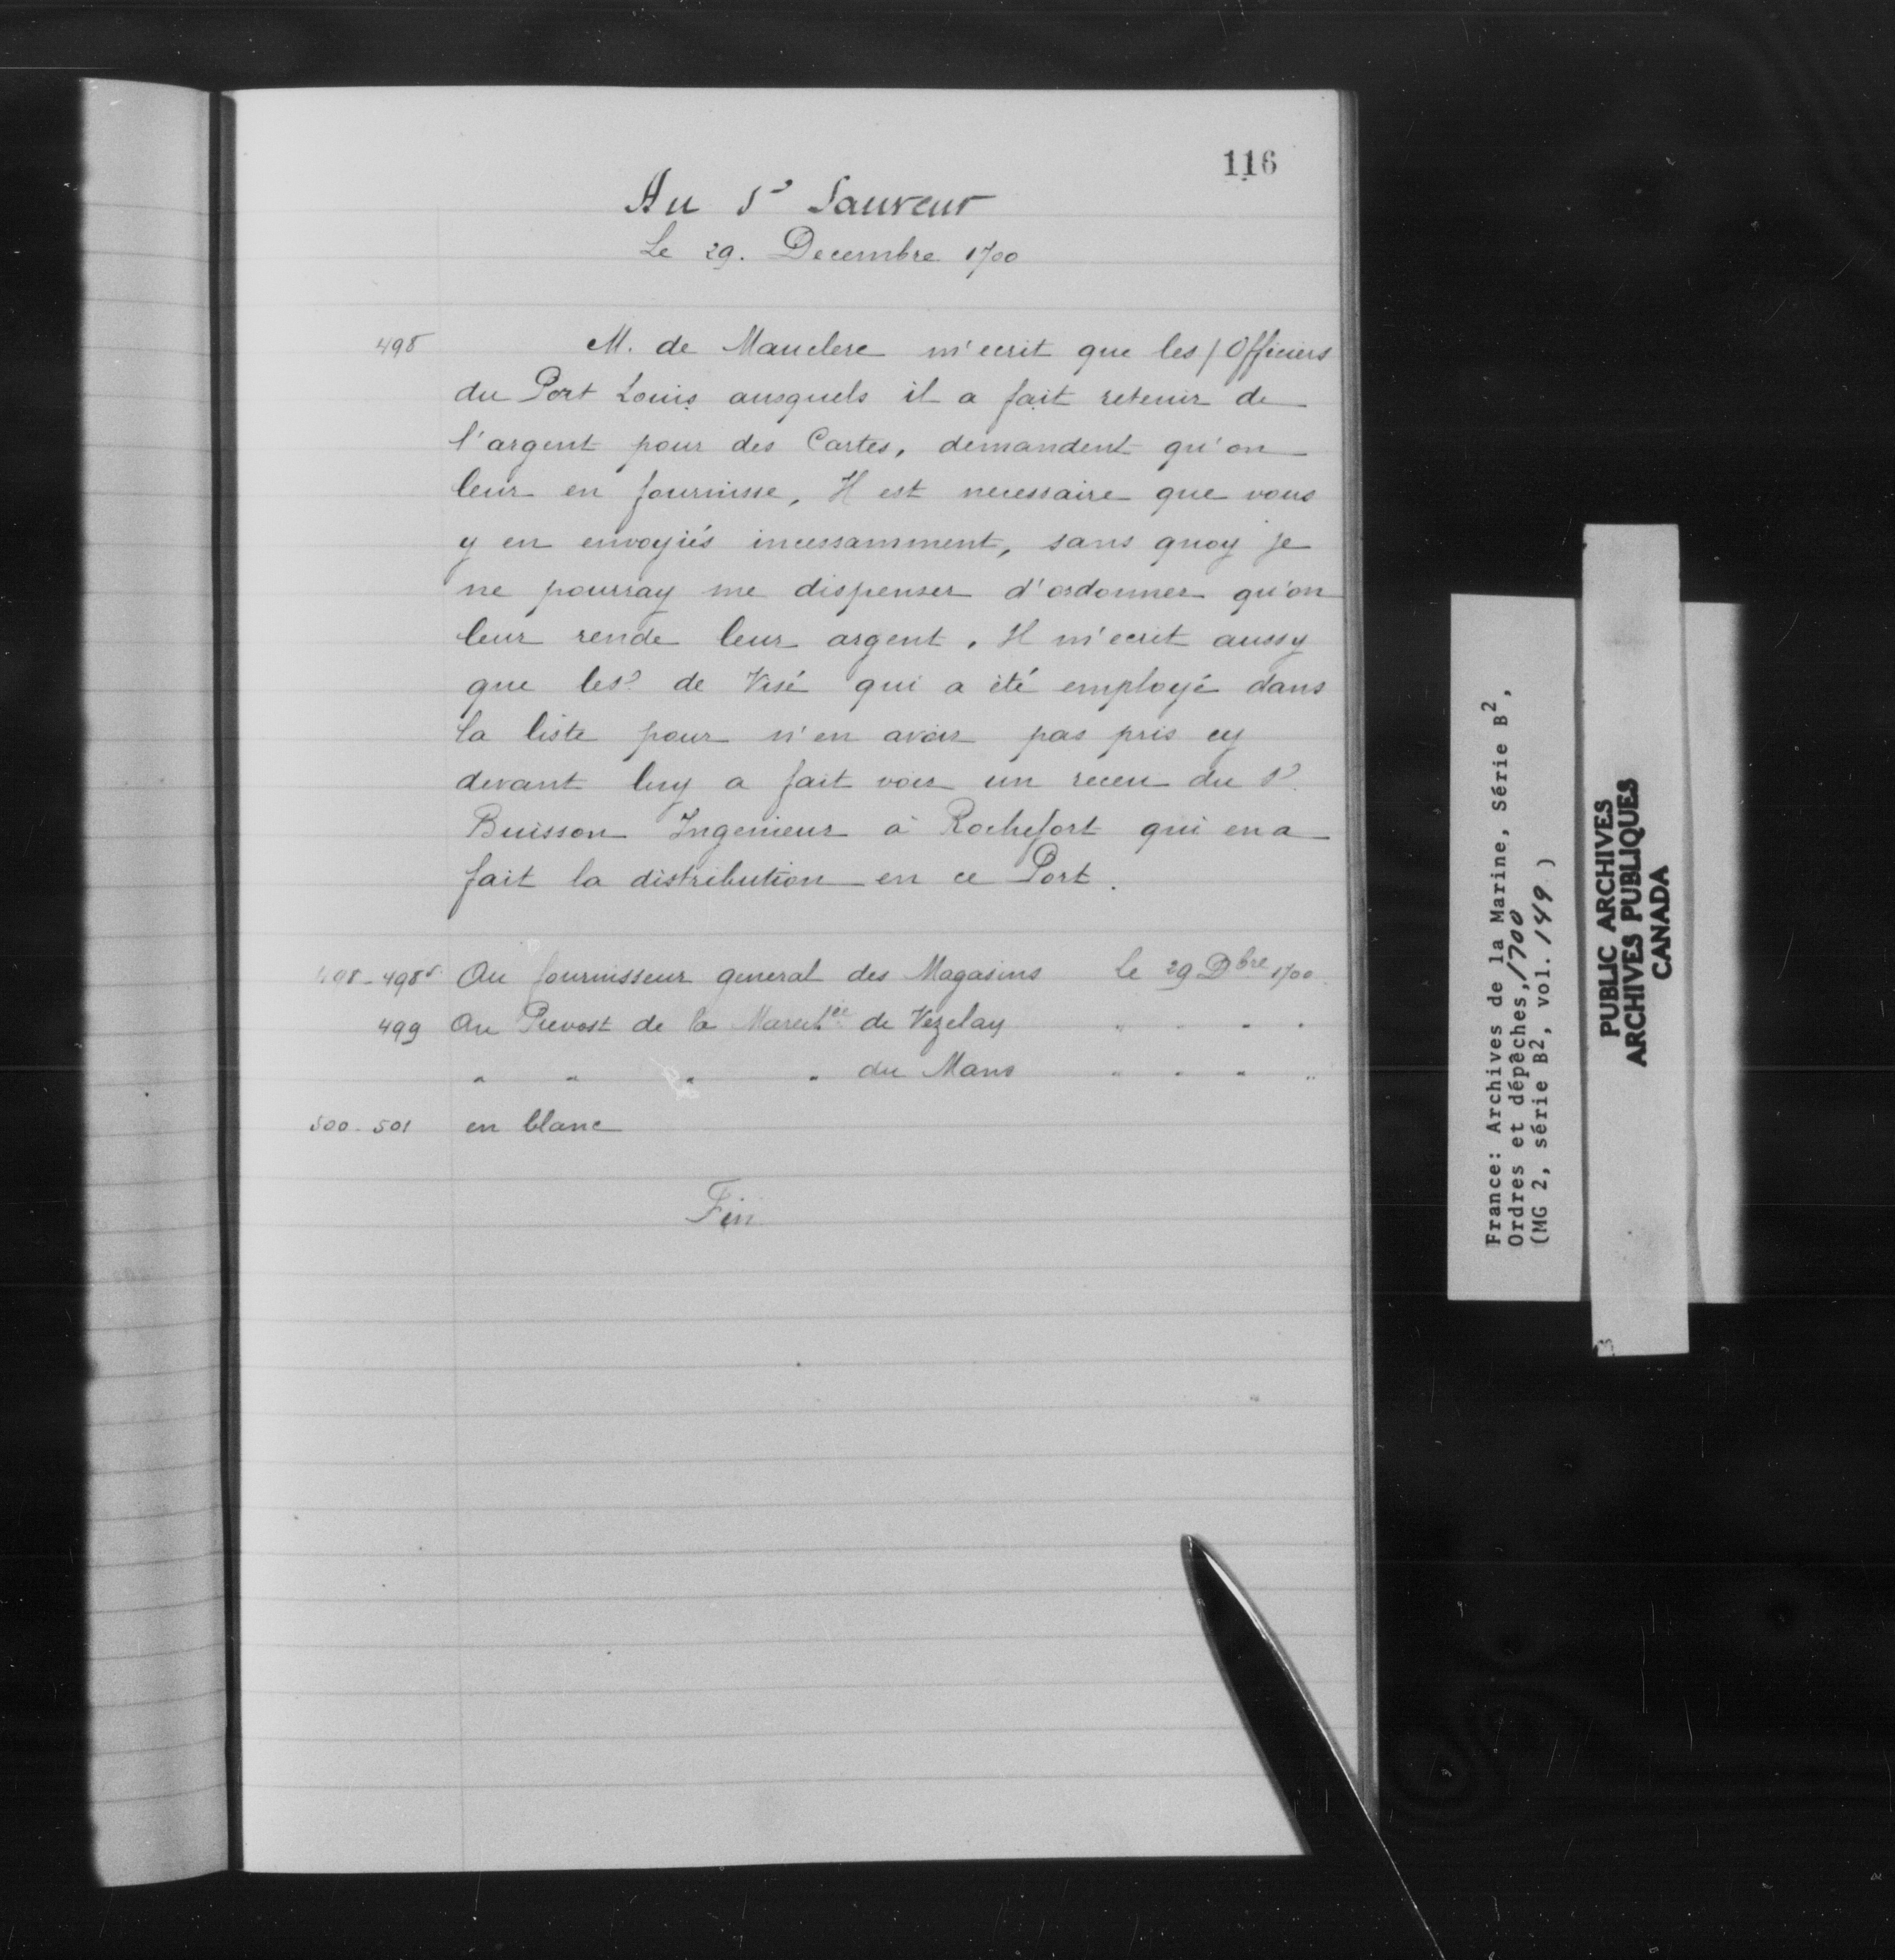 116
Au Sr Sauveur
Le 29. Decembre 1700
498 M. de Mauclere m'ecrit que les / Officiers
du Port Louis ausquels il a fait retenir de
l'argent pour des Cartes, demandent qu'on
leur en fournisse, Il est necessaire que vous
y en envoyiés incessamment, sans quoy je
ne pourray me dispenser d'ordonner qu'on
leur rende leur argent. Il m'ecrit aussy
que les de Visé qui a été employé dans
la liste pour n'en avoir pas pris cy
devant luy a fait voir un receu du Sr.
Buisson Ingenieur à Rochefort qui en a
fait la distribution en ce Port.
498-498v Au fournisseur general des Magasins le 29 Dbre 1700
499 Au Prevost de la de Vezelay " " " "
" " " " du Mans " " " "
500-501 en blanc
Fin
France: Archives de la Marine, Série B2,
Ordres et dépêches, 1700
(MG 2, série B2, vol. 149 )
PUBLIC ARCHIVES
ARCHIVES PUBLIQUES
CANADA